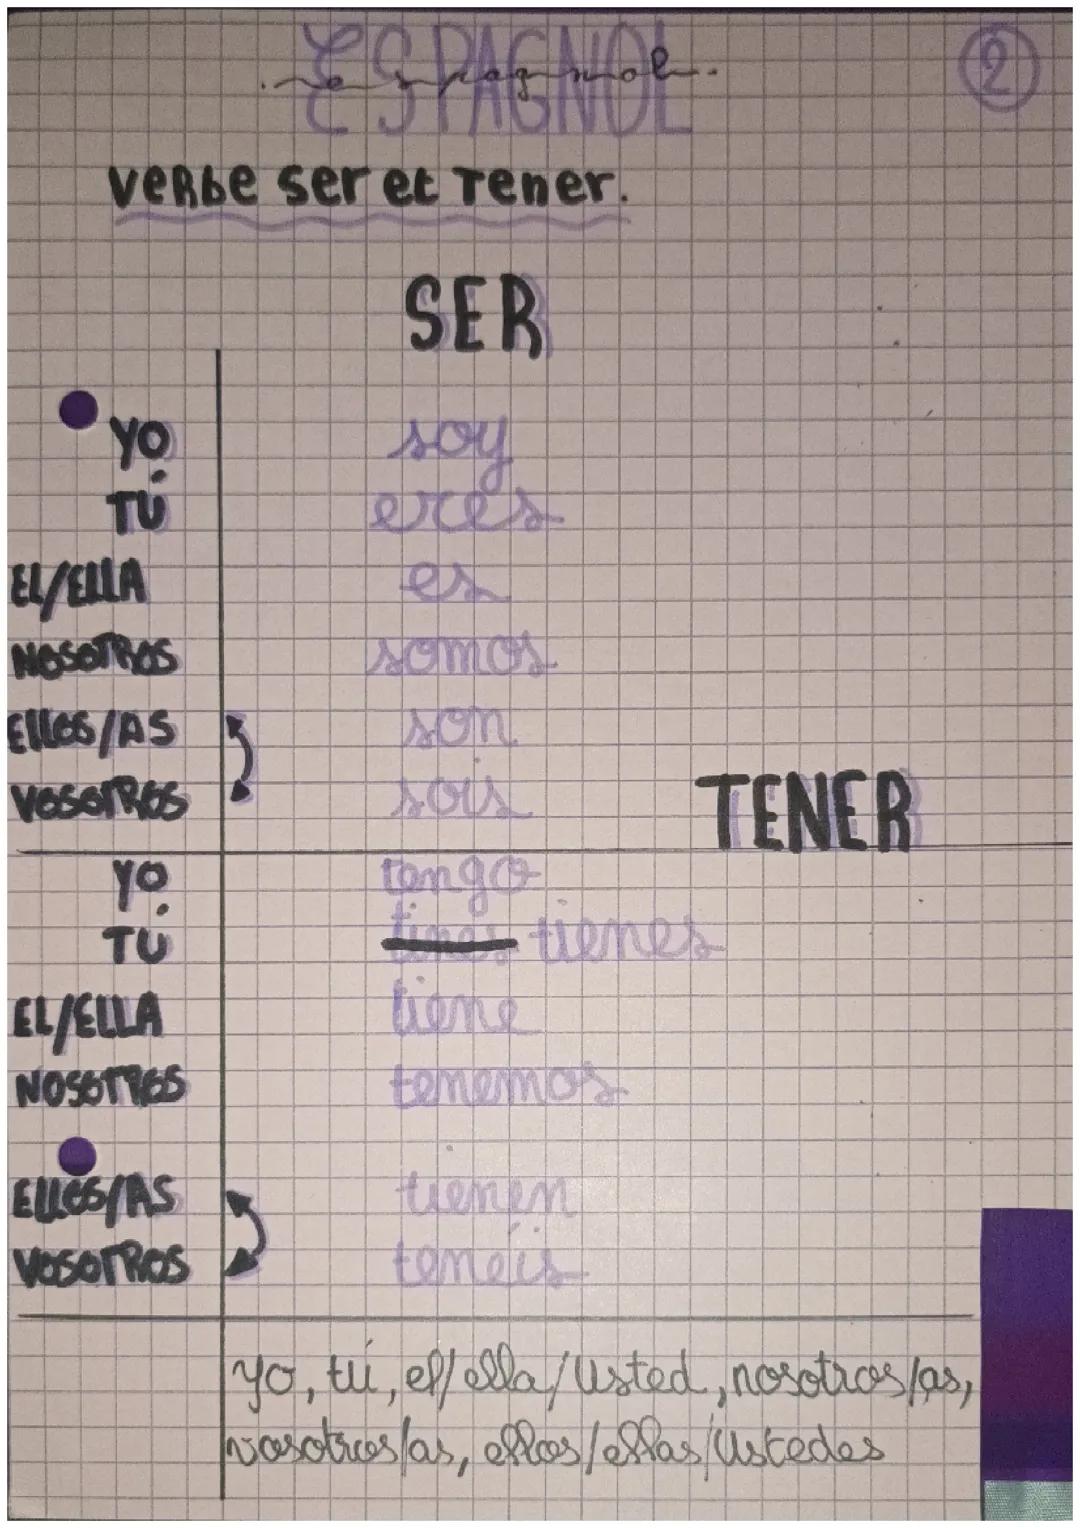 ESPAGNOL
espagnol
2
verbe ser et Tener.
SER
YO soy
TÚ eres
EL/ELLA es
NOSOTROS somos
ELLOS/AS son
VOSOTROS sois
TENER
YO tengo
TÚ tines tienes
EL/ELLA tiene
NOSOTROS tenemos
ELLOS/AS tienen
VOSOTROS tenéis
yo, tú, el/ella/Usted, nosotros/as,
vosotros/as, ellos/ellas/Ustedes